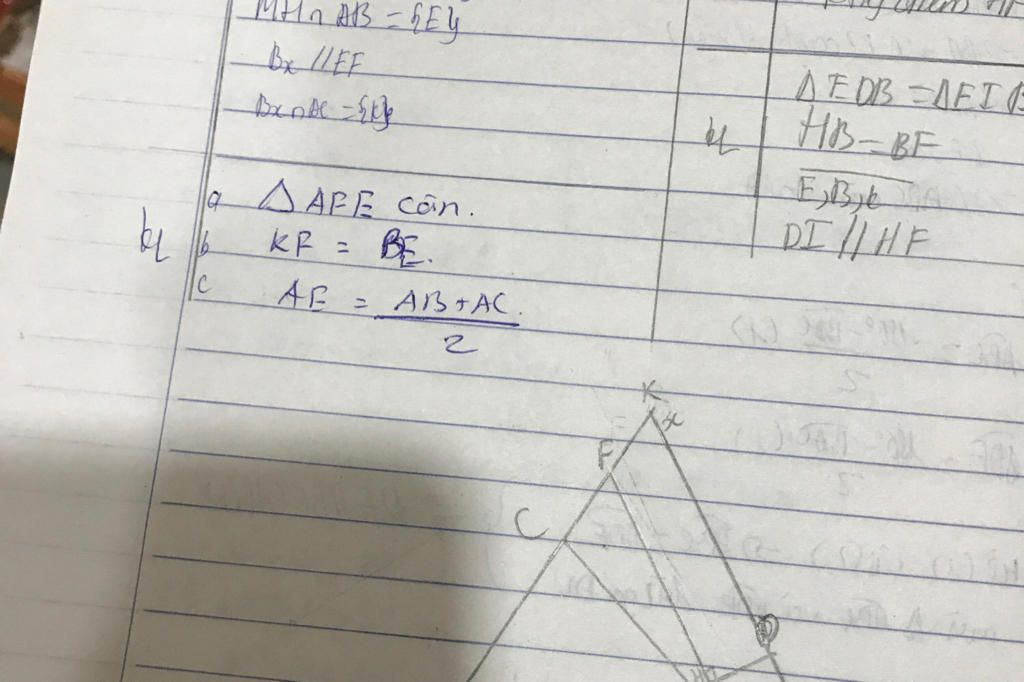 MH∩AB = {E}
Bx // EF
Bx∩AC = {K}
a △AFE cân.
b KF = BE.
c AE = AB+AC
2
kl
ΔEDB = ΔEI
kl
HB = BF
E,B,k
DI // HF
K
x
F
C